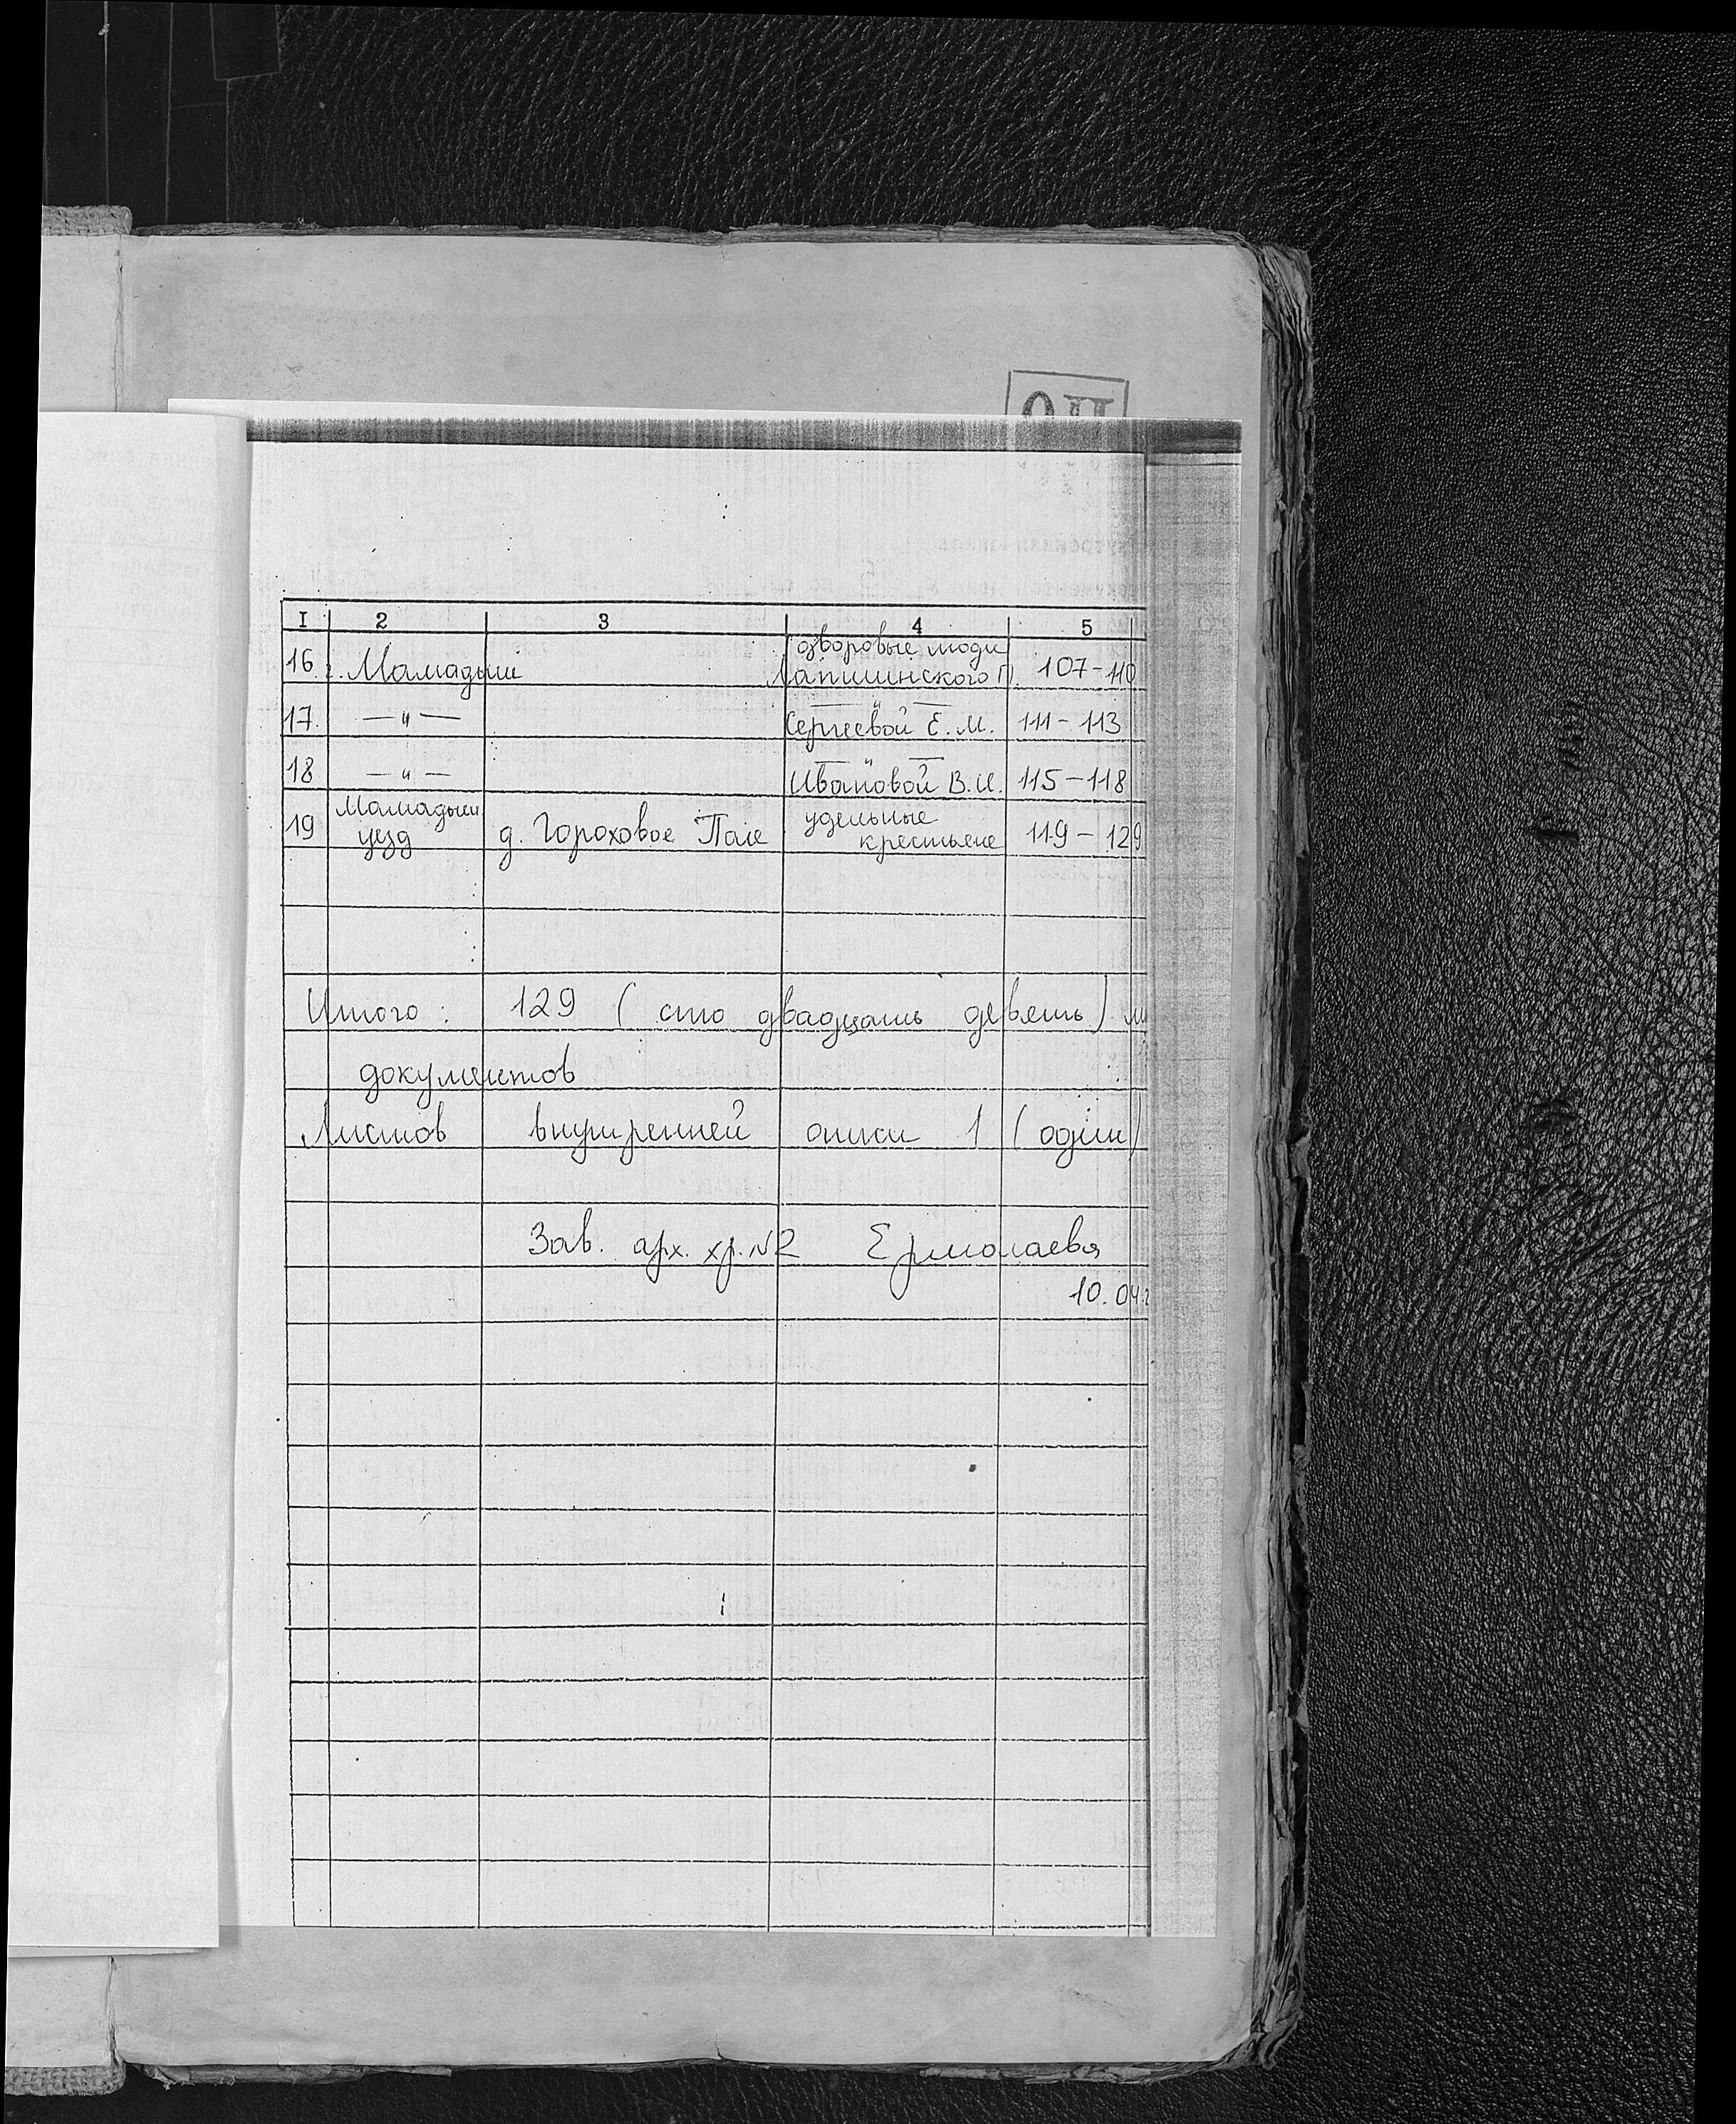 I 2 3 4 5
дворовые люди
16. г. Мамадыш Лапшинского П. 107-110
— " —
17. — " — Сергеевой Е.М. 111-113
— " —
18 — " — Ивановой В.И. 115-118
Мамадыш удельные
19 уезд д. Гороховое Поле крестьяне 119-129
Итого: 129 (сто двадцать девять)
документов
Листов внутренней описи 1 (один)
Зав. арх. хр. №2 Ермолаева
10.04.